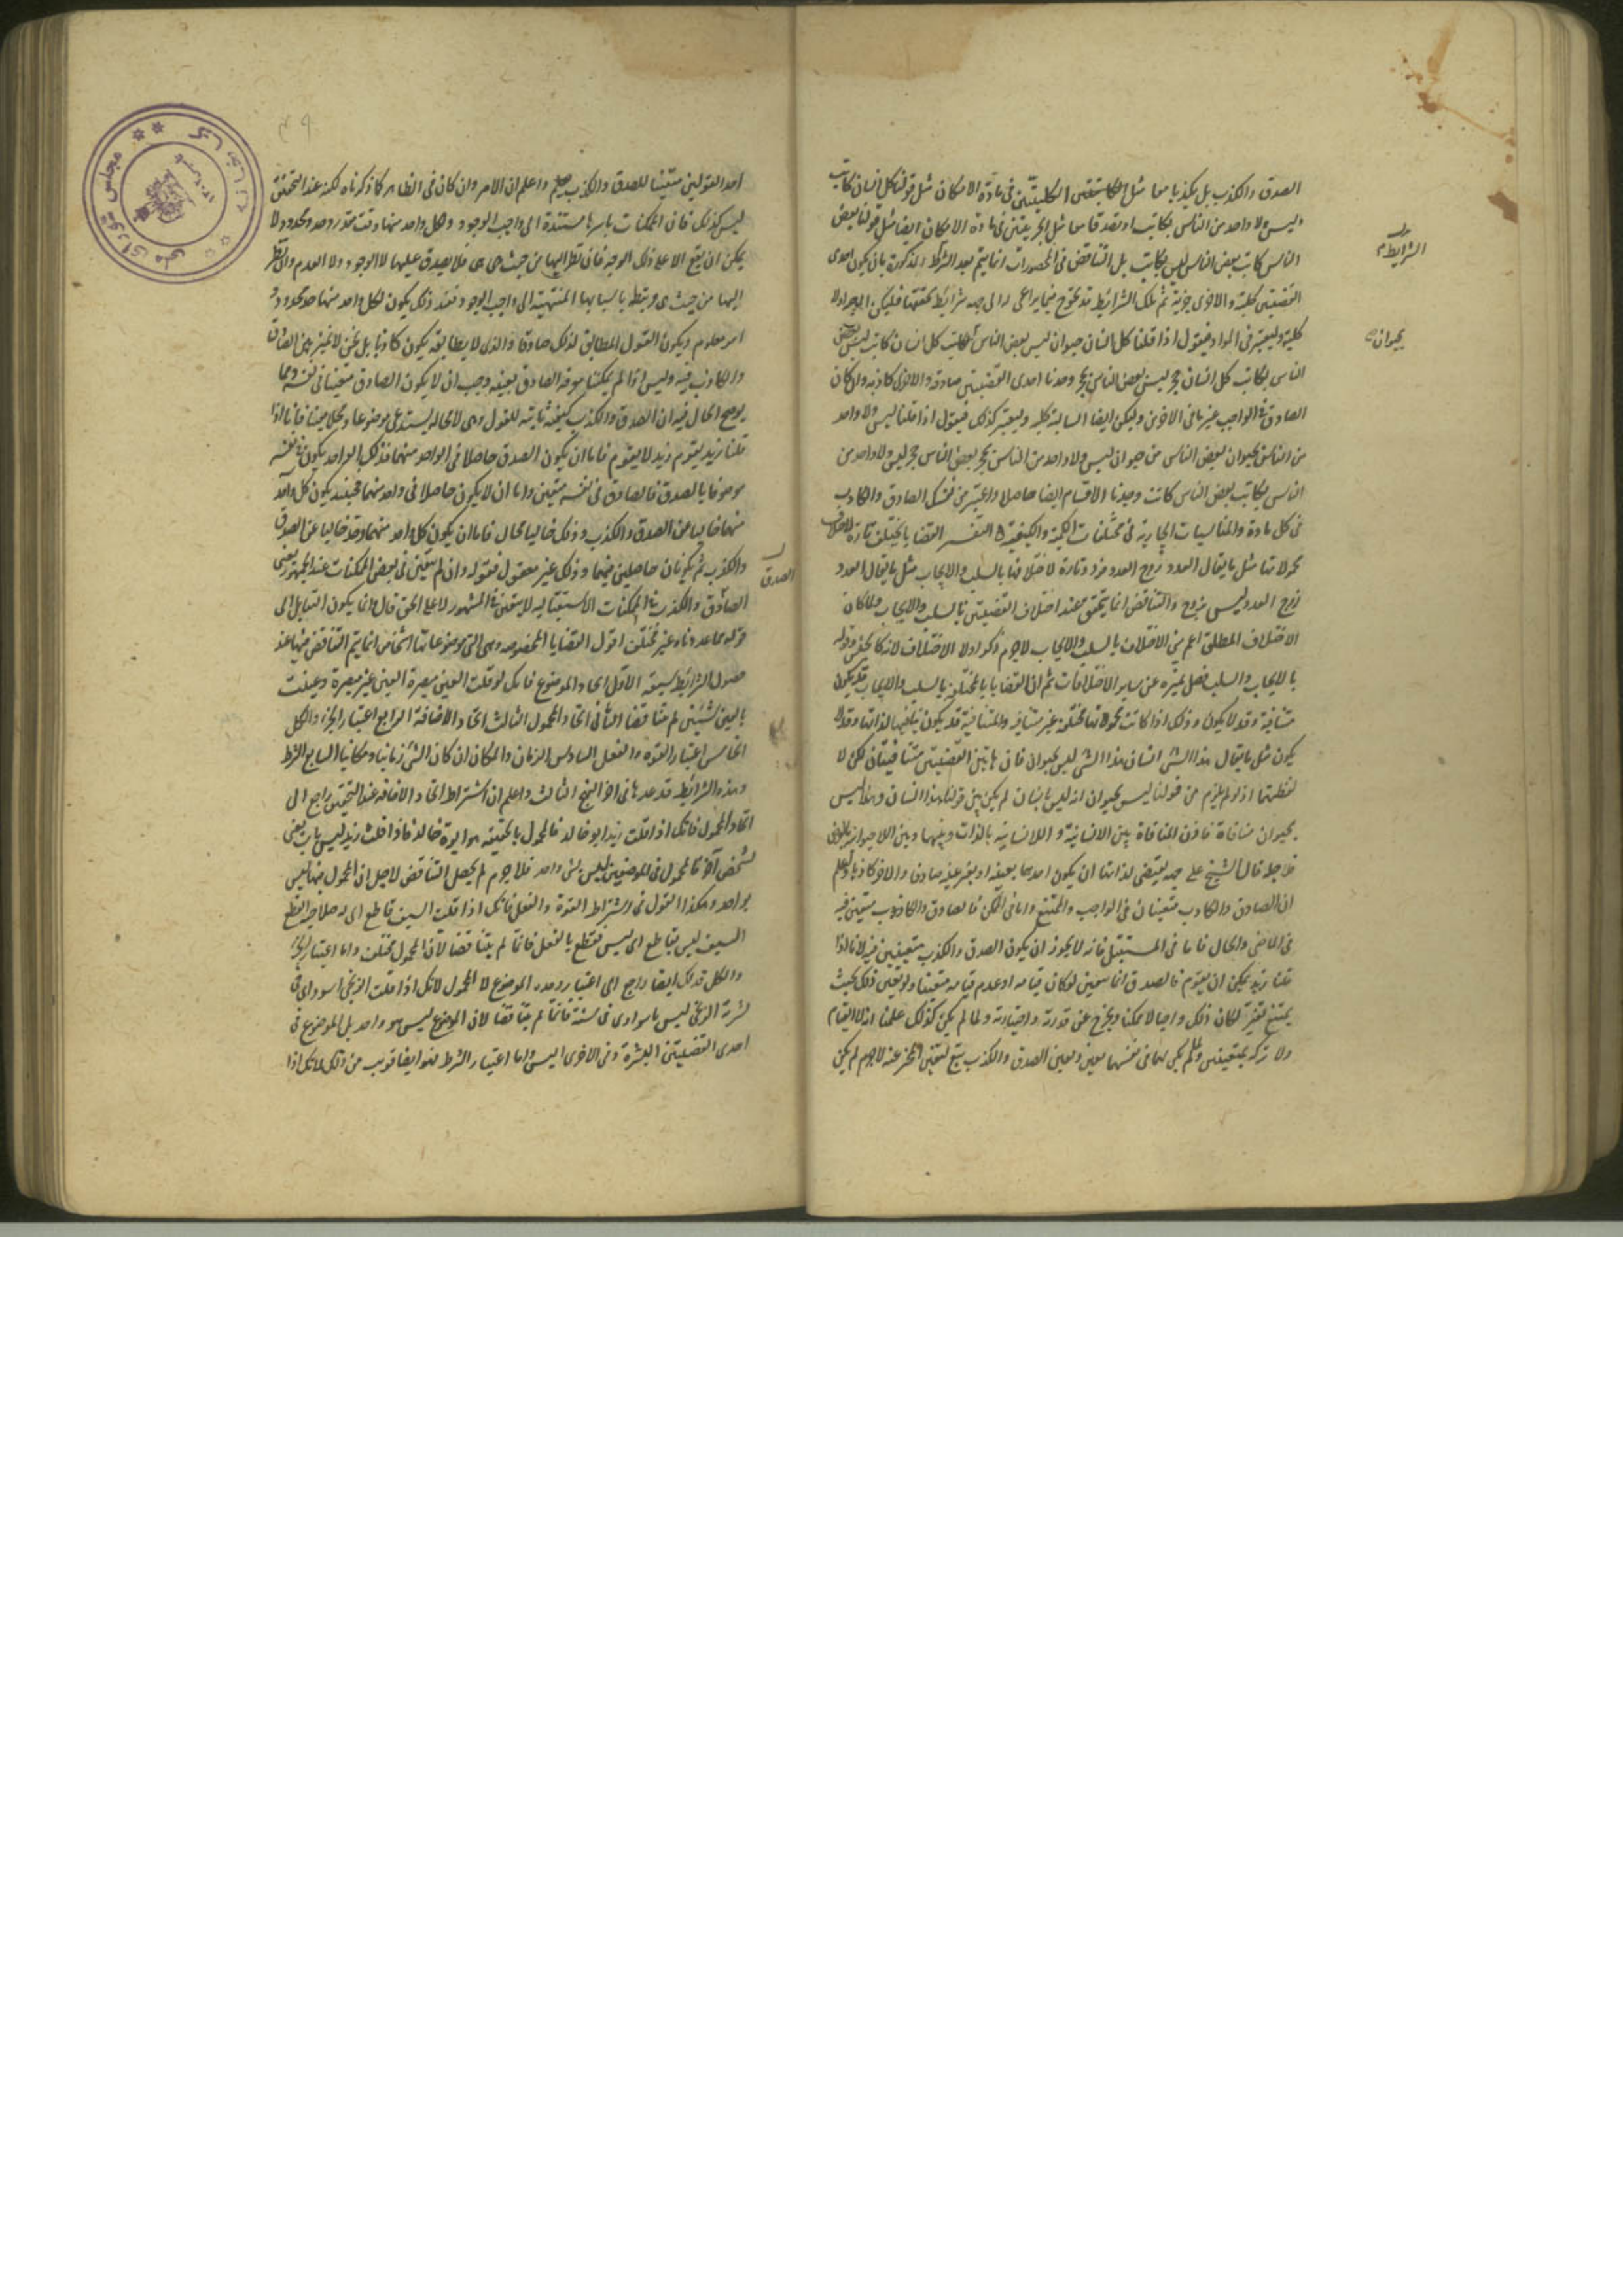 الصدق والكذب بل يكذبا معا مثل الكليتين في مادة الامكان مثل قولنا كل انسان كاتب
وليس ولا واحد من الناس بكاتب او يصدقا معا مثل الجزيتين في مادة الامكان ايضا مثل قولنا بعض
الناس كاتب بعض الناس ليس بكاتب بل التناقض في المحصورات انما يتم بعد الشرائط المذكورة بان يكون احدى
القضيتين كلية والاخرى جزية ثم تلك الشرائط قد تحوج فيما يراعى له الى جهة شرائط تحققها فليكن الموجبة اولا
كلية وليعتبر في المواد فنقول اذا قلنا كل انسان حيوان ليس بعض الناس كل انسان كاتب ليس بعض
الناس بكاتب كل انسان حجر ليس بعض الناس بحجر وجدنا احدى القضيتين صادقة والاخرى كاذبة وان كان
الصادق في الواجب غير ما في الاخرين وليكن ايضا السالبة كلية وليعتبر كذلك فنقول اذا قلنا ليس ولا واحد
من الناس بحيوان بعض الناس حيوان ليس ولا واحد من الناس بحجر بعض الناس حجر ليس ولا واحد من
الناس بكاتب بعض الناس كاتب وجدنا الاقسام ايضا حاصلا واعتبر من نفسك الصادق والكاذب
في كل مادة والمناسبات الجارية في مختلفات الكمية والكيفية التفسير القضايا يختلف تارة لاختلاف
محمولاتها مثل ما يقال العدد زوج العدد فرد وتارة لاختلافها بالسلب والايجاب مثل ما يقال العدد
زوج العدد ليس بزوج والتناقض انما يتحقق عند اختلاف القضيتين بالسلب والايجاب ولما كان
الاختلاف المطلق اعم من الاختلاف بالسلب والايجاب لاجرم ذكر اولا الاختلاف لانه كالجنس وقوله
بالايجاب والسلب فصل يميزه عن ساير الاختلافات ثم ان القضايا المختلفة بالسلب والايجاب قد يكون
متنافية وقد لا يكون وذلك اذا كانت محمولاتها مختلفة غير متنافية والمتنافية قد يكون تنافيها لذاتها وقد لا
يكون مثل ما يقال هذا الشي انسان هذا الشي ليس بحيوان فان هاتين القضيتين متنافيتان لكن لا
لفظيتهما اذ لو لم يلزم من قولنا ليس بحيوان انه ليس بانسان لم يكن بين قولنا هذا انسان وهذا ليس
بحيوان منافاة فاذن المنافاة بين الانسانية واللاانسانية بالذات وبينها وبين اللاحيوانية بالعرض
فلاجله قال الشيخ على جهة يقتضي لذاتها ان يكون احدهما بعينه او بغير عينه صادقا والاخر كاذبا واعلم
ان الصادق والكاذب متعينان في الواجب والممتنع واما في الممكن فالصادق والكاذب متعين فيه
في الماضي والحال فاما في المستقبل فانه لا يجوز ان يكون الصدق والكذب متعينين فيه لانا اذا
قلنا زيد يمكن ان يقوم فالصدق انما يتعين لو كان قيامه او عدم قيامه متعينا ولو تعين ذلك بحيث
يمتنع تغيره لكان ذلك واجبا لا ممكنا ويخرج عن قدرته واختيارته ولما لم يكن كذلك علمنا انه لا القيام
ولا تركه بمتعينين ولما لم يكن لهما في نفسهما تعين وتعين الصدق والكذب يتبع لتعين المخبر عنه لاجرم لم يكن
الشرايط
بحيوان
احد القولين متعينا للصدق والكذب واعلم ان الامر وان كان في الظاهر كما ذكرناه لكنه عند التحقيق
ليس كذلك فان الممكنات باسرها مستندة الى واجب الوجود ولكل واحد منها وقت مقدر وحد محدود ولا
يمكن ان يقع الا على ذلك الوجه فان نظر اليها من حيث هي هي فلا يصدق عليها لا الوجود ولا العدم وان نظر
اليها من حيث هي مرتبطة باسبابها المنتهية الى واجب الوجود فعند ذلك يكون لكل واحد منها حد محدود و
امر معلوم ويكون القول المطابق لذلك صادقا والذي لا يطابقه يكون كاذبا بل نحن لا نميز بين الصادق
والكاذب فيه وليس اذا لم يمكننا معرفة الصادق بعينه وجب ان لا يكون الصادق متعينا في نفسه ومما
يوضح الحال فيه ان الصدق والكذب كيفية ثابتة للقول وهي لا محالة يستدعي موضوعا ومحلا معينا فانا اذا
قلنا زيد يقوم زيد لا يقوم فاما ان يكون الصدق حاصلا في الواحد منهما فذلك الواحد يكون في نفسه
موصوفا بالصدق فالصادق في نفسه متعين واما ان لا يكون حاصلا في واحد منهما فحينئذ يكون كل واحد
منهما خاليا عن الصدق والكذب وذلك خاليا محال فاما ان يكون كل واحد منهما وقد خاليا عن الصدق
والكذب ثم يكونان حاصلين فيهما وذلك غير معقول فقوله وان لم يتعين في بعض الممكنات عند الجمهور يعني
الصادق والكذب في الممكنات الاستقبالية لا يتعين في المشهور لا على الحق قال وانما يكون التقابل الى
قوله مما عددناه غير مختلف اقول القضايا المخصوصة وهي التي موضوعاتها اشخاص انما يتم التناقض فيها عند
حصول الشرائط سبعة الاول اتحاد الموضوع فانك لو قلت العين مبصرة العين غير مبصرة وعينت
بالعين شيئين لم يتناقضا الثاني اتحاد المحمول الثالث اتحاد الاضافة الرابع اعتبار الجزء والكل
الخامس اعتبار القوة والفعل السادس الزمان والمكان ان كان الشي زمانيا ومكانيا السابع الشرط
وهذه الشرائط قد عدها في اخر النهج الثالث واعلم ان اشتراط اتحاد الاضافة عند التحقيق راجع الى
اتحاد المحمول فانك اذا قلت زيد ابو خالد فالمحمول بالحقيقة هو ابوة خالد فاذا قلت زيد ليس باب يعني
لشخص آخر فالمحمول في الموضعين ليس بشي واحد فلا جرم لم يحصل التناقض لاجل ان المحمول فيها ليس
بواحد وهكذا القول في اشتراط القوة والفعل فانك اذا قلت السيف قاطع اى له صلاحية القطع
السيف ليس بقاطع اى ليس يقطع بالفعل فانما لم يتناقضا لان المحمول مختلف واما اعتبار الجزء
والكل فذلك ايضا راجع الى اعتبار وحدة الموضوع لا المحمول لانك اذا قلت الزنجي اسود اى في
بشرته الزنجي ليس باسود اى في سنه فانما لم يتناقضا لان الموضوع ليس هو واحد بل الموضوع في
احدى القضيتين البشرة وفي الاخرى السن واما اعتبار الشرط فهو ايضا قريب من ذلك لانك اذا
الصدق
مجلس شورای ملی